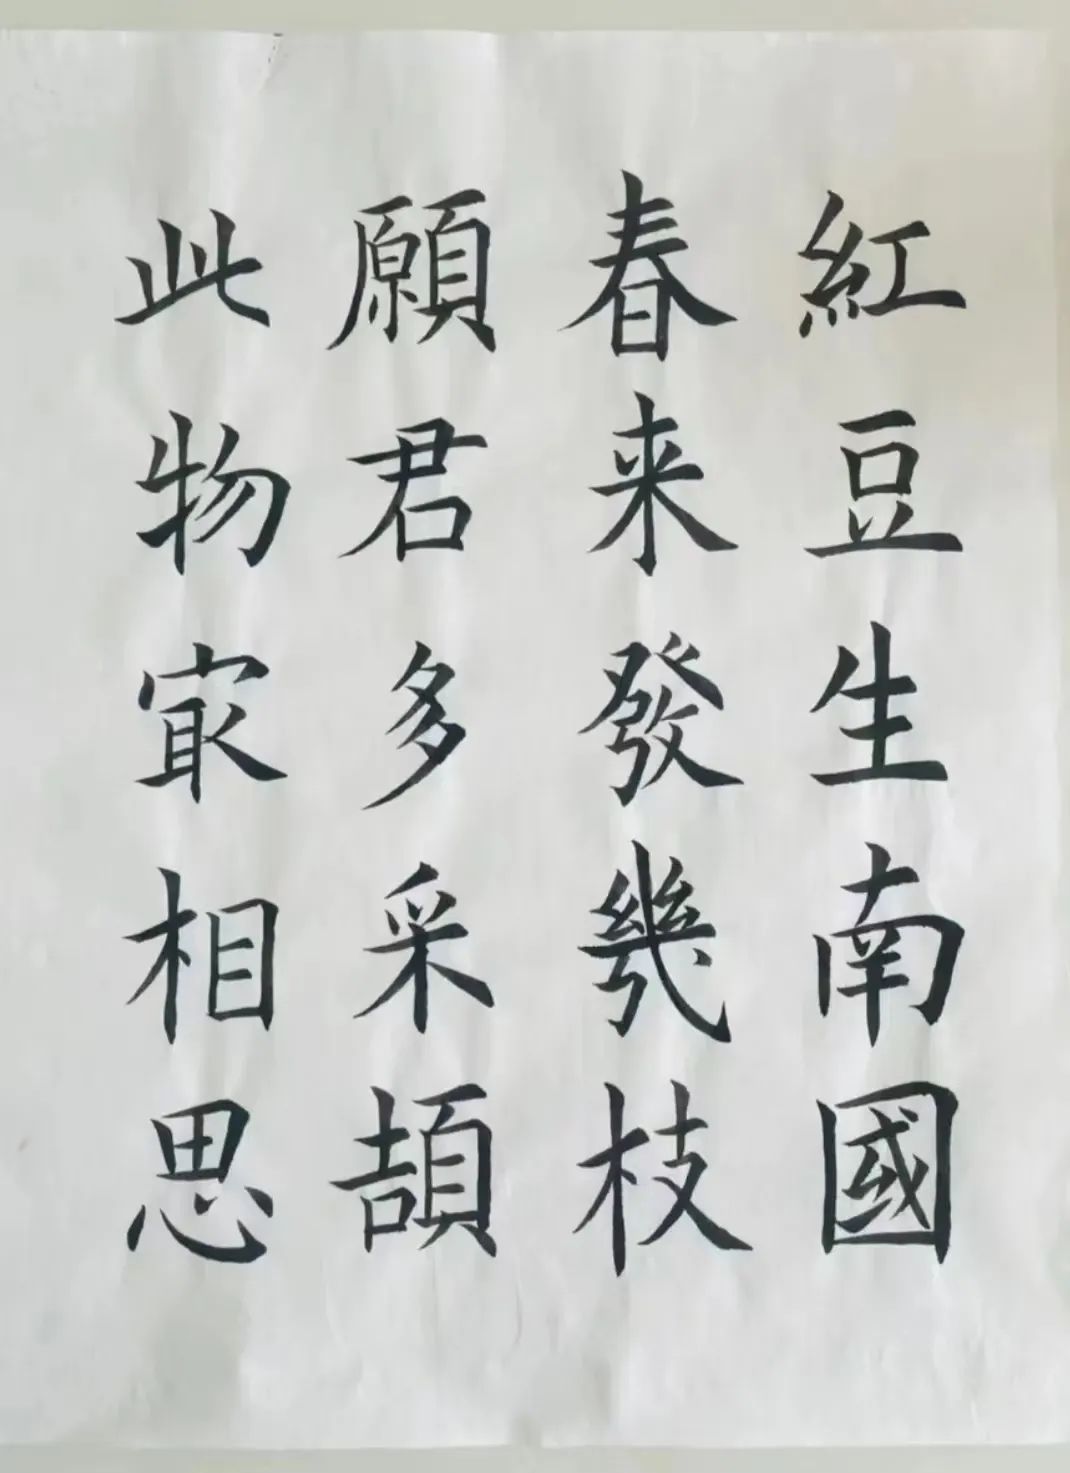 紅豆生南國
春来發幾枝
願君多采頡
此物㝡相思